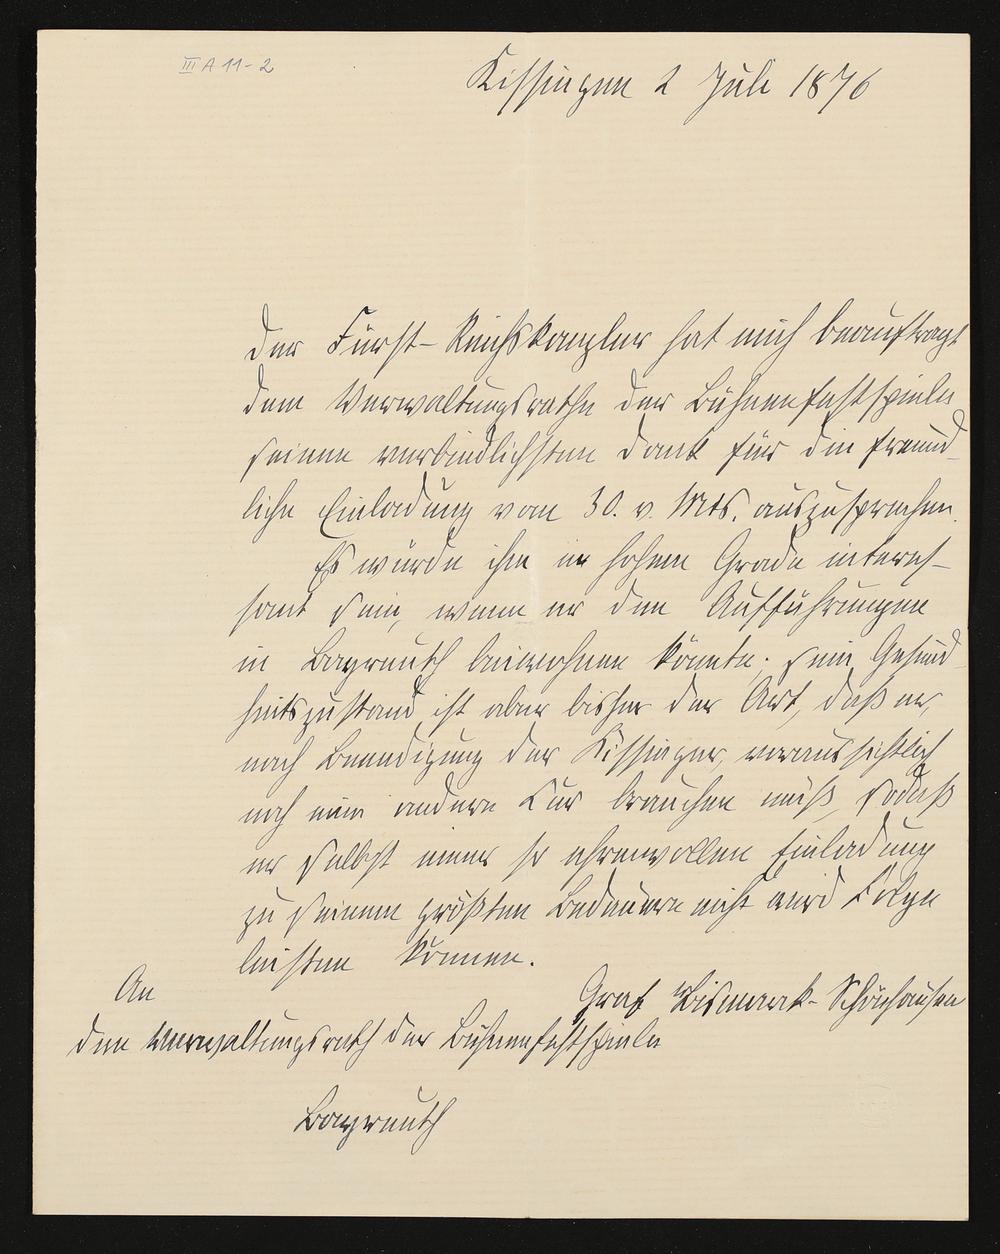 III A 11-2
Kissingen 2 Juli 1876
Der Fürst-Reichskanzler hat mich beauftragt
dem Verwaltungsrathe der Bühnenfestspiele
seinen verbindlichsten Dank für die freund-
liche Einladung vom 30. v. Mts. auszusprechen.
Es würde ihm in hohem Grade interes-
sant sein, wenn er den Aufführungen
in Bayreuth beiwohnen könnte; sein Gesund-
heitszustand ist aber bisher der Art, daß er,
nach Beendigung der Kissinger, voraussichtlich
noch eine andere Cur brauchen muß, sodaß
er selbst einer so ehrenvollen Einladung
zu seinem größten Bedauern nicht wird Folge
leisten können.
Graf Bismarck-Schönhausen
An
den Verwaltungsrath der Bühnenfestspiele
Bayreuth